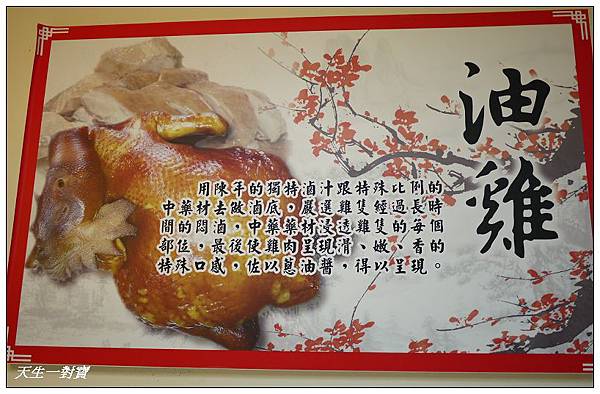 油雞
用陳年的獨特滷汁跟特殊比例的
中藥材去做滷底，嚴選雞隻經過長時
間的悶滷，中藥藥材浸透雞隻的每個
部位，最後使雞肉呈現滑、嫩、香的
特殊口感，佐以蔥油醬，得以呈現。
天生一對寶